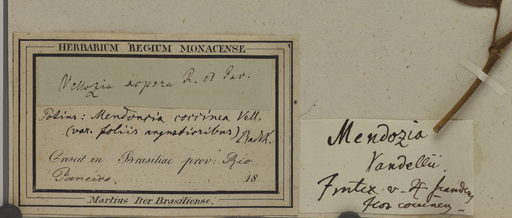 HERBARIUM REGIUM MONACENSE
Vellozia aspera R. et Pav.
Potius: Mendonzia coccinea Vell.
(var. foliis angustioribus) Radlk.
Crescit in Brasiliae prov. Rio
Janeiro. 18
Martius Iter Brasiliense.
Mendozia
Vandellii
Frutex v. grandis
flos coccineus